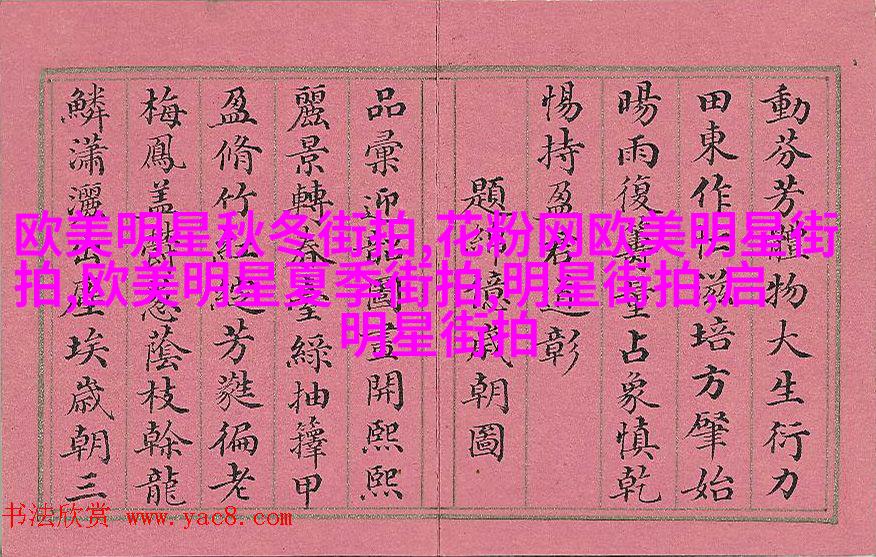 動芬芳體物大生衍力
田東作滋培方肇始
暘雨復量占象慎乾
惕持盈彰
題歲朝圖
品彙迎韶圖畫開熙熙
麗景轉春臺綠抽籜甲
盈脩竹紅綻芳蕤徧老
梅鳳蓋蔭枝榦龍
鱗瀟灑出塵埃歲朝三
欧美明星秋冬街拍,花粉网欧美明星街
拍,欧美明星夏季街拍,明星街拍,启
明星街拍
书法欣赏 www.yac8.com